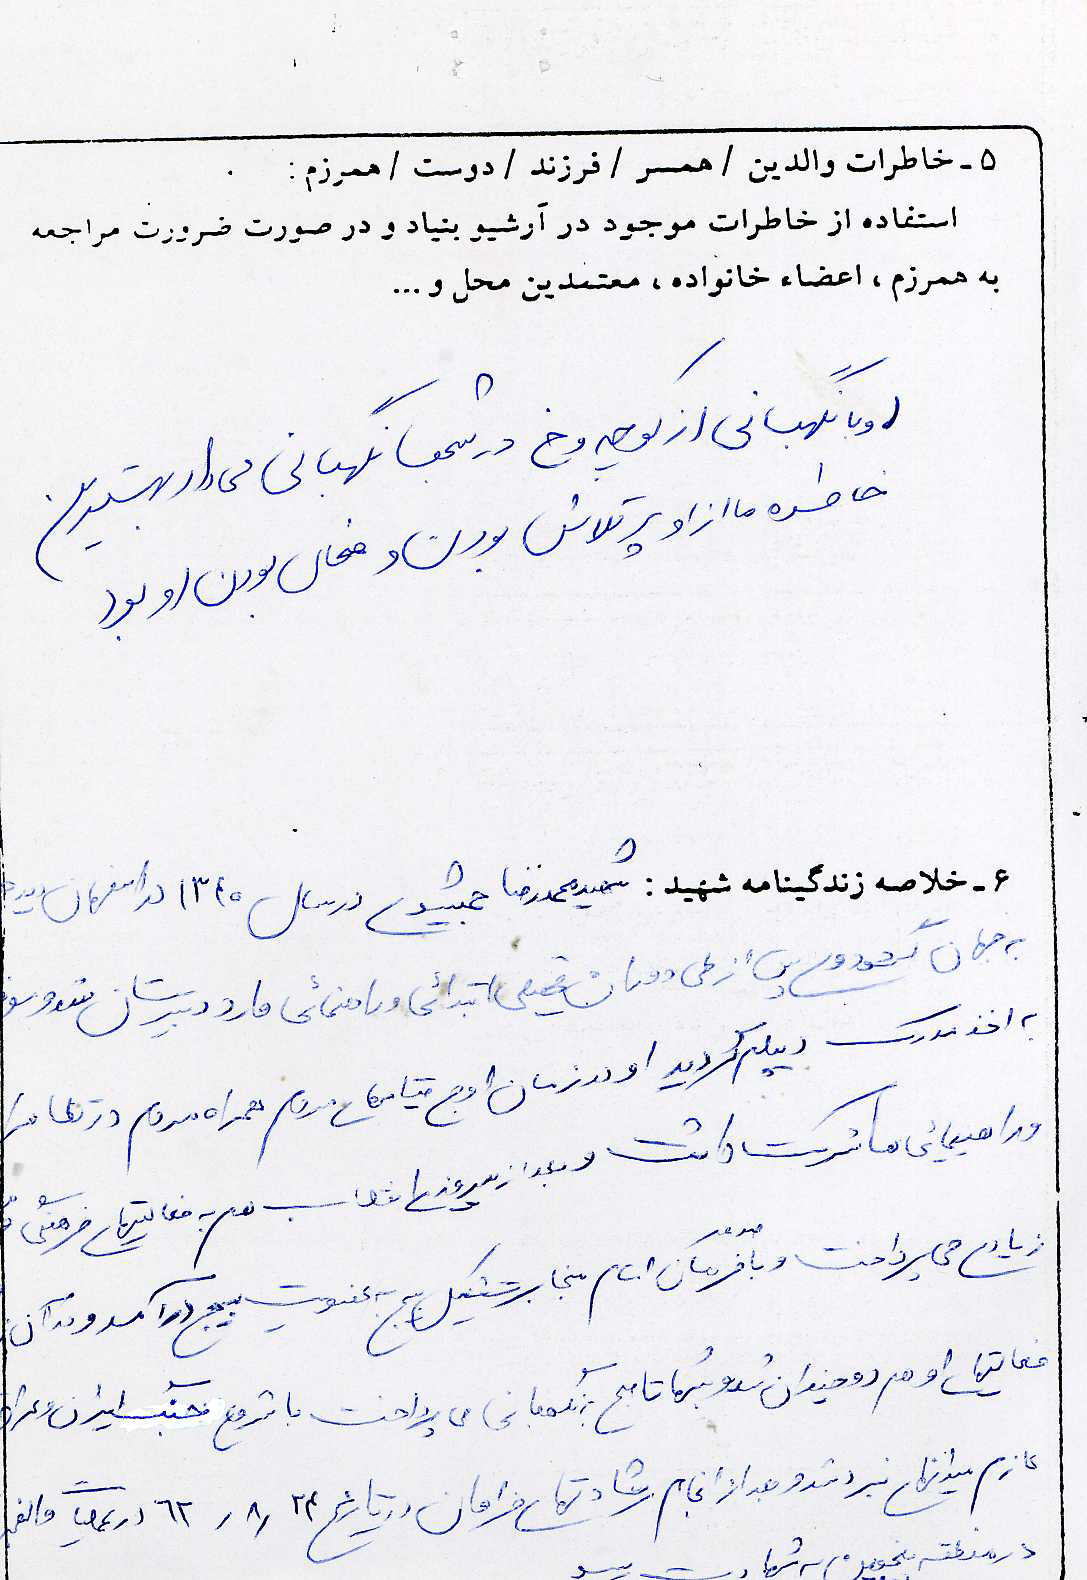 ۵ ـ خاطرات والدین / همسر / فرزند / دوست / همرزم :
استفاده از خاطرات موجود در آرشیو بنیاد و در صورت ضرورت مراجعه
به همرزم ، اعضاء خانواده ، معتمدین محل و ...
او با نگهبانی از کوچه و در شبها نگهبانی می داد بهترین
خاطره ما از او پر تلاش بودن و فعال بودن او بود
۶ ـ خلاصه زندگینامه شهید : شهید محمدرضا جمشیدی در سال ۱۳۴۰ در اصفهان دیده
به جهان گشود وی پس از طی دوران تحصیلی ابتدائی و راهنمائی وارد دبیرستان شد و
به اخذ مدرک دیپلم گردید او در زمان اوج قیامهای مردم همراه مردم در
و راهپیمائی ها شرکت داشت و بعد از پیروزی انقلاب هم به فعالیتهای فرهنگی
زیادی می پرداخت و با صدور فرمان امام مبنی بر تشکیل بسیج به عضویت بسیج درآمد و در آن
فعالیتهای او هم دو چندان شد و شبها تا صبح به نگهبانی می پرداخت با شروع جنگ ایران و
عازم میدانهای نبرد شد و بعد از انجام رشادتهای فراوان در تاریخ ۲۴ / ۸ / ۶۲ در عملیات
در منطقه به شهادت رسید